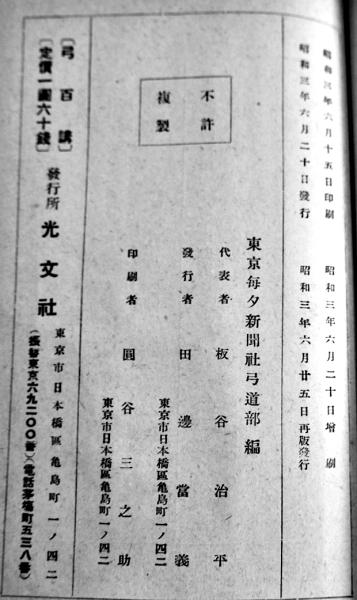 昭和三年六月十五日印刷
昭和三年六月二十日發行
昭和三年六月二十日增刷
昭和三年六月廿五日再版發行
不許
複製
東京每夕新聞社弓道部編
代表者 板谷治平
發行者 田邊當義
東京市日本橋區龜島町一ノ四二
印刷者 圓谷三之助
東京市日本橋區龜島町一ノ四二
〔弓百講〕
〔定價一圓六十錢〕
發行所 光文社
東京市日本橋區龜島町一ノ四二
(振替東京六九二〇〇番)電話茅場町五三八番)